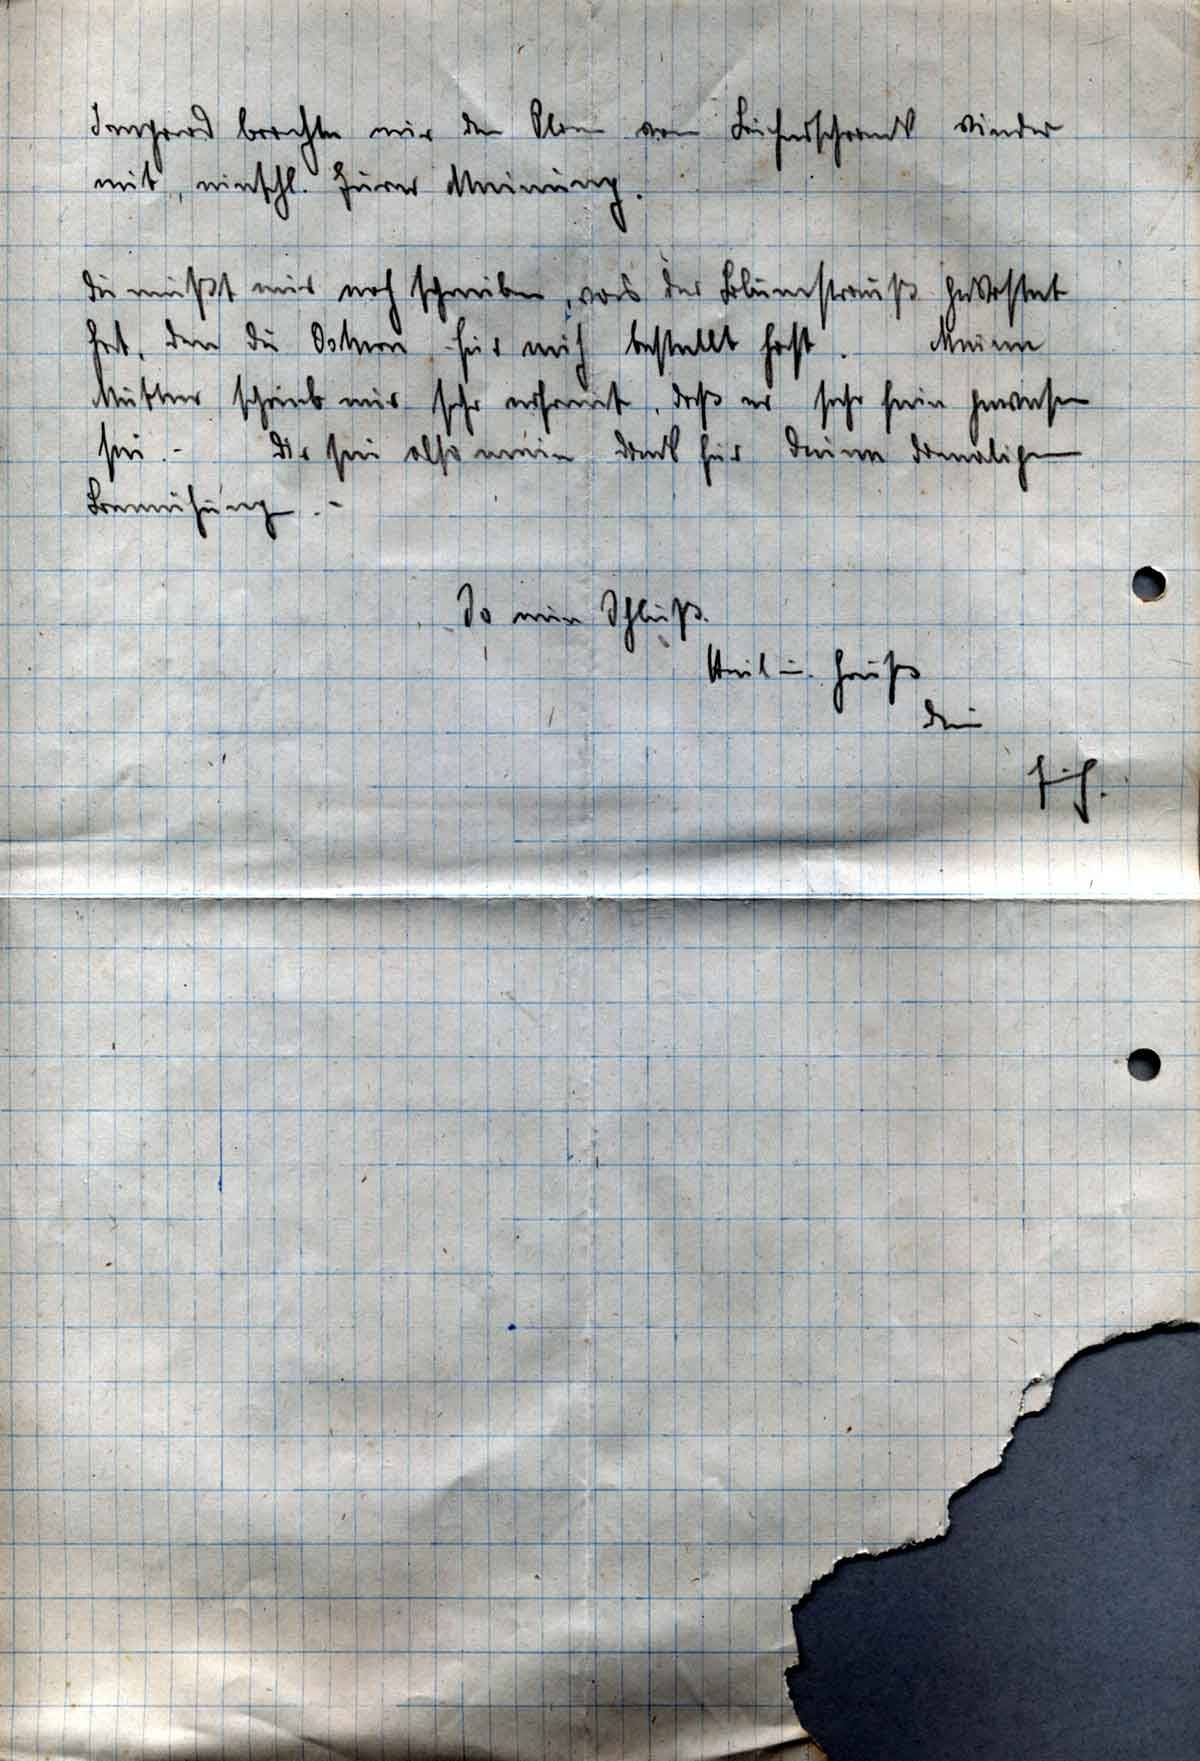 Irmgard brachte mir den Plan vom Bücherschrank wieder
mit, einschl. Eurer Meinung.
Du mußt mir noch schreiben, was der Blumenstrauß gekostet
hat, den Du Ostern für mich bestellt hast. Meine
Mutter schrieb mir sehr erfreut, daß er sehr fein gewesen
sei.- Dir sei also mein Dank für Deine damalige
Bemühung.-
So nun Schluß.
Heil u. Gruß
Dein